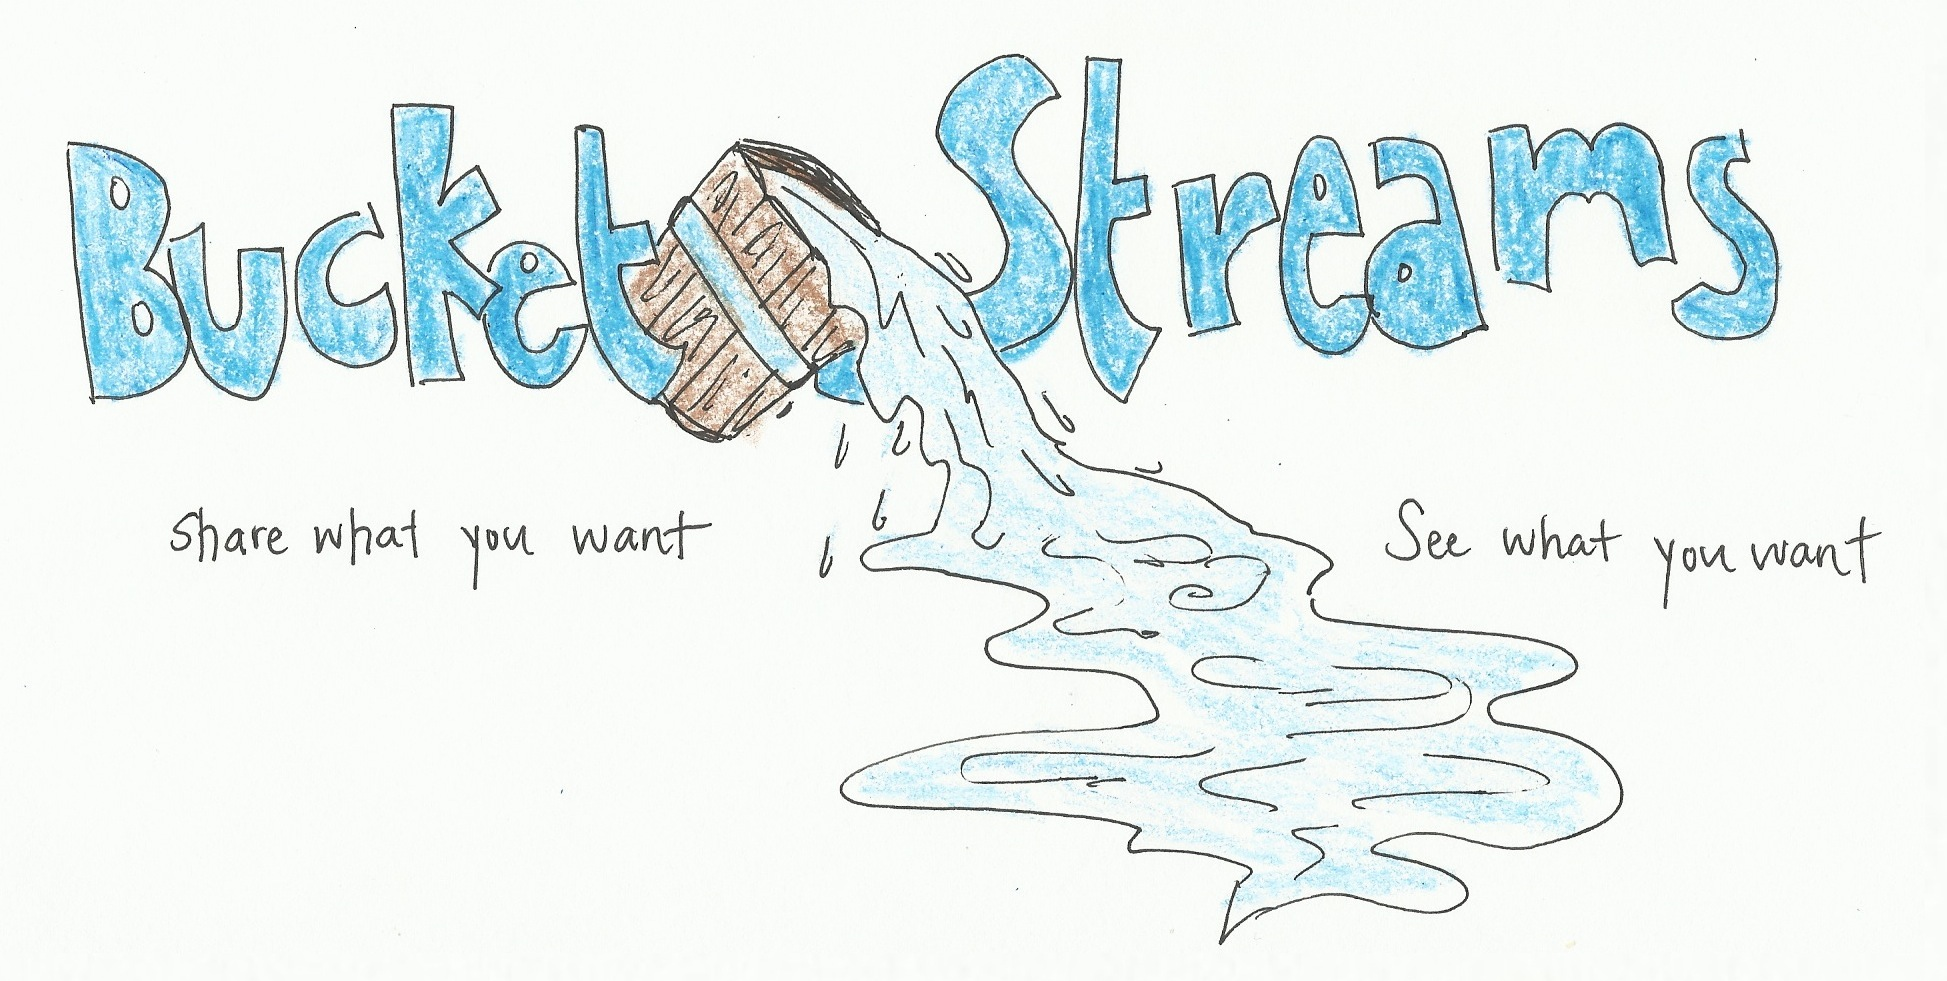 Bucket Streams
Share what you want
See what you want